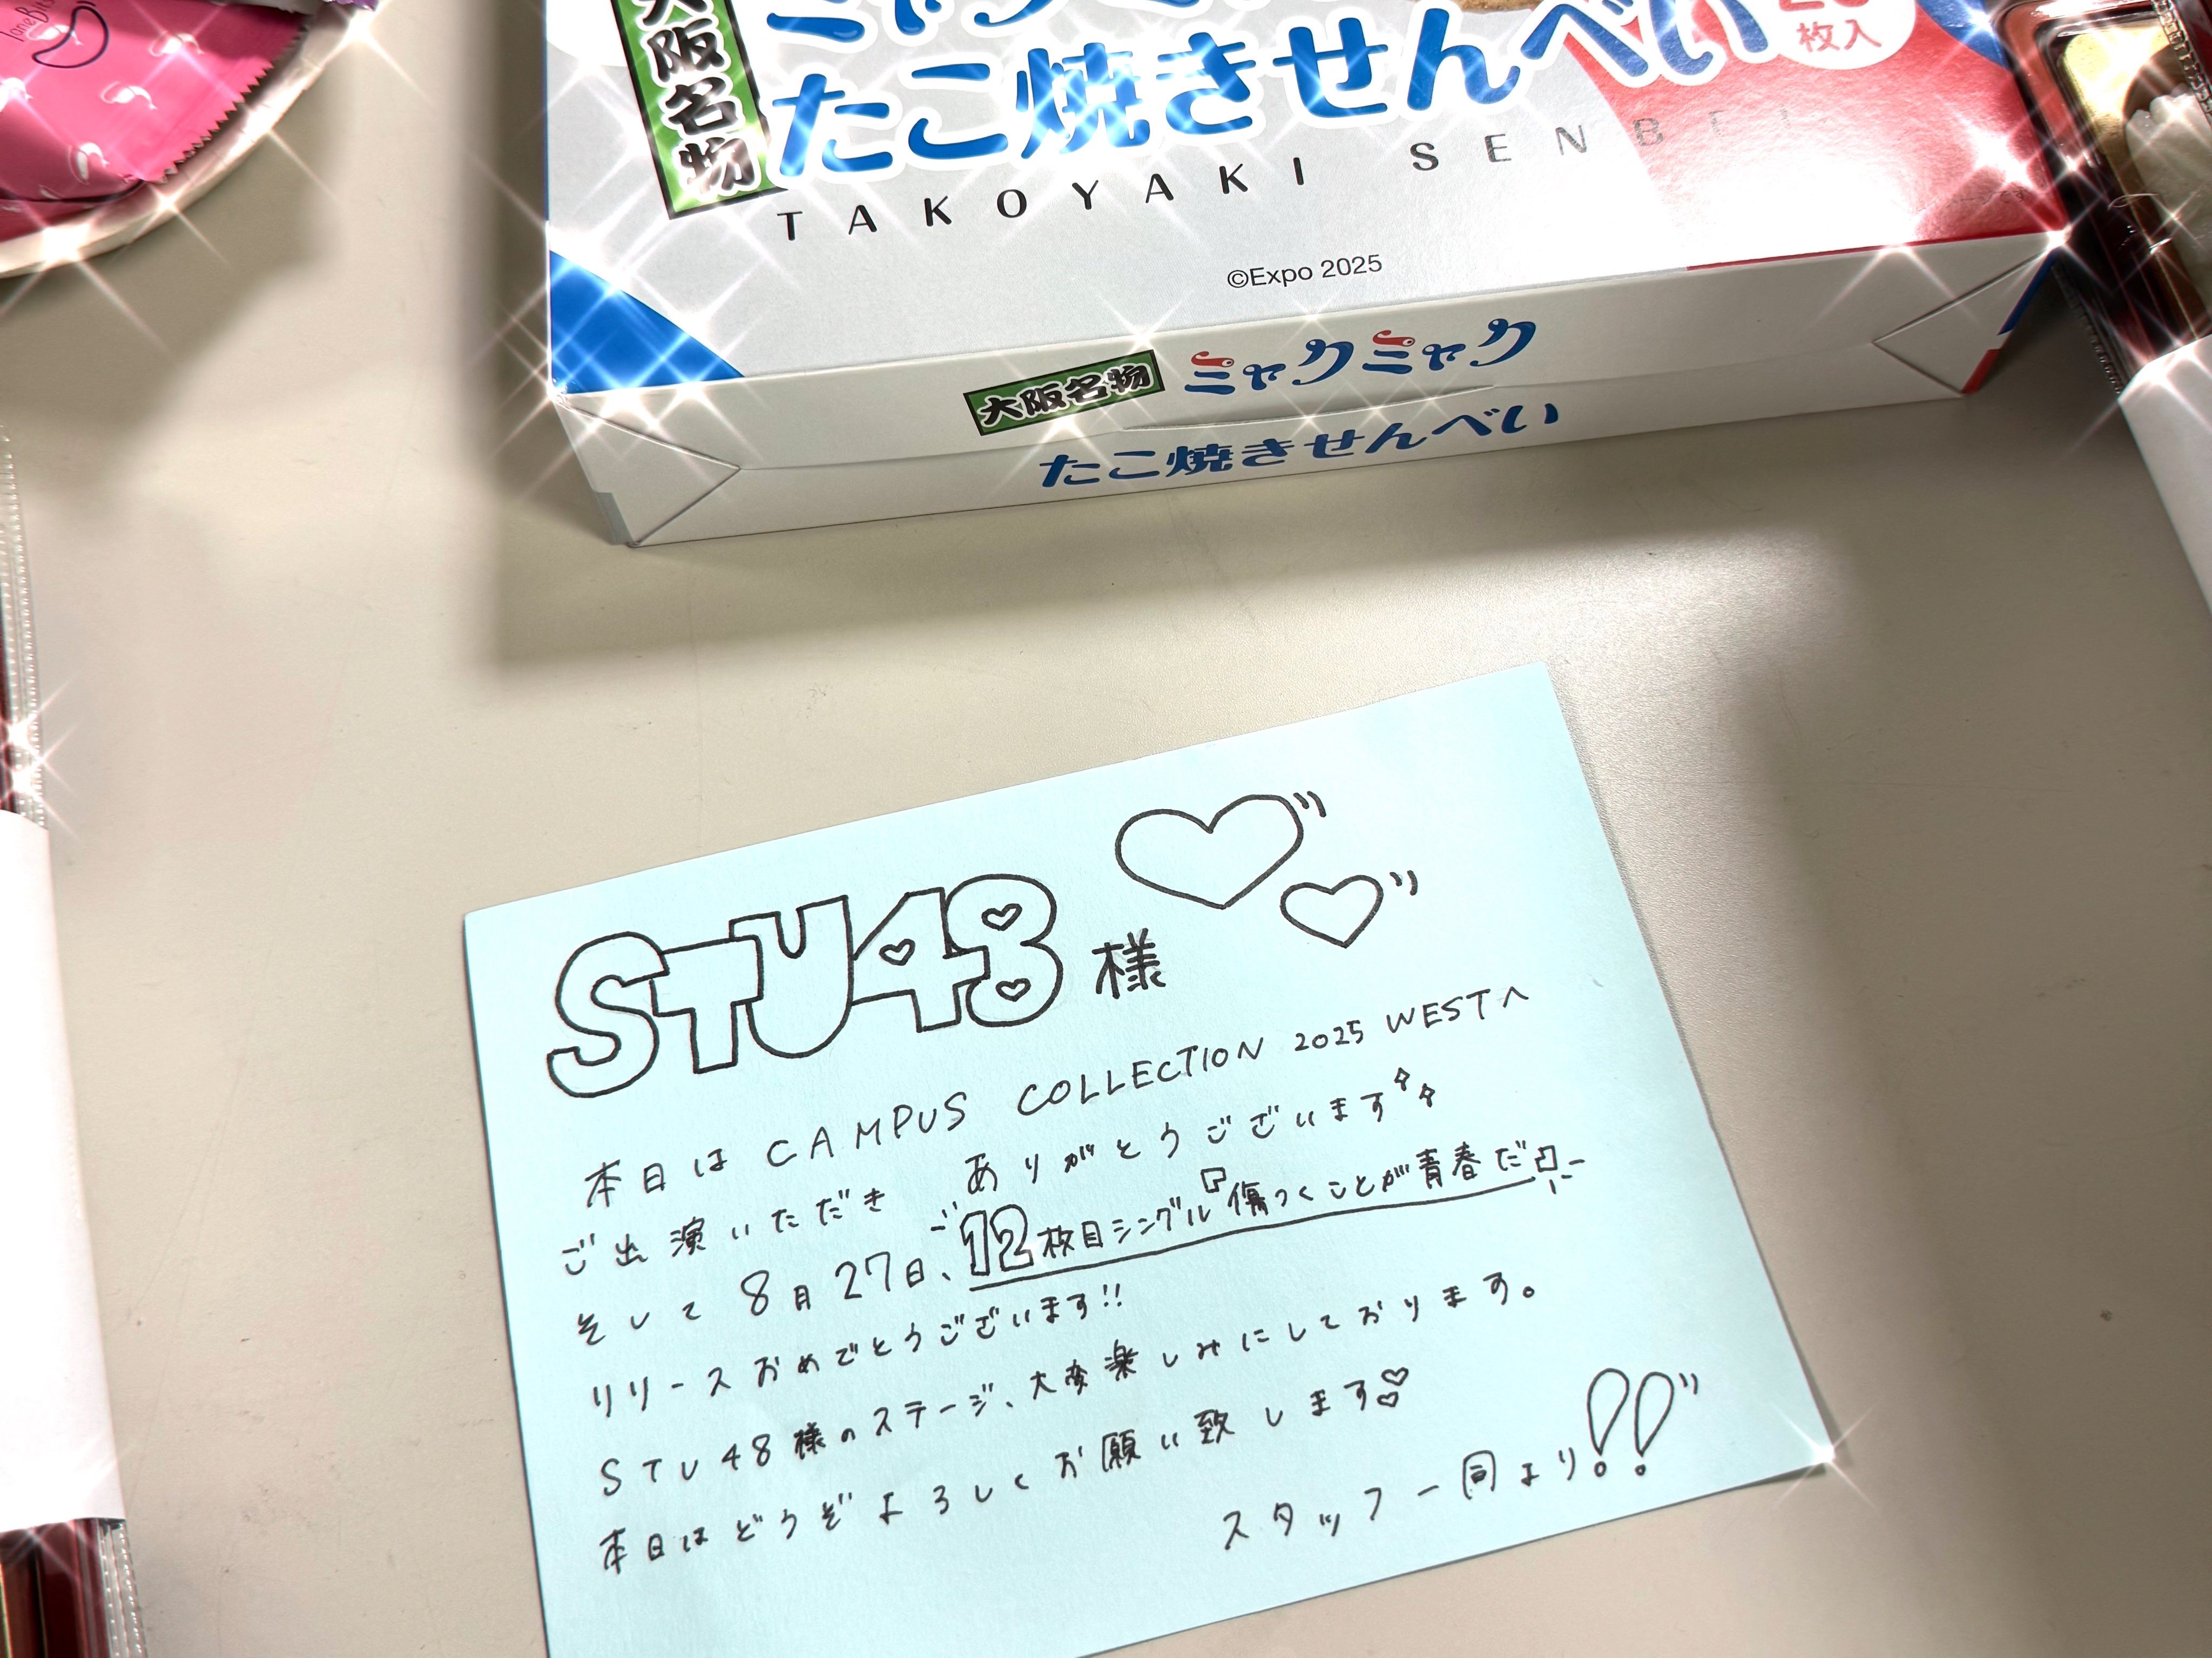 大阪名物
ミャクミャク
たこ焼きせんべい
枚入
TAKOYAKI SENBEI
©Expo 2025
大阪名物 ミャクミャク
たこ焼きせんべい
STU48様
本日は CAMPUS COLLECTION 2025 WESTへ
ご出演いただき ありがとうございます
そして 8月27日、12枚目シングル『傷つくことが青春だ』
リリースおめでとうございます!!
STU48様のステージ、大変楽しみにしております。
本日はどうぞよろしくお願い致します
スタッフ一同より!!